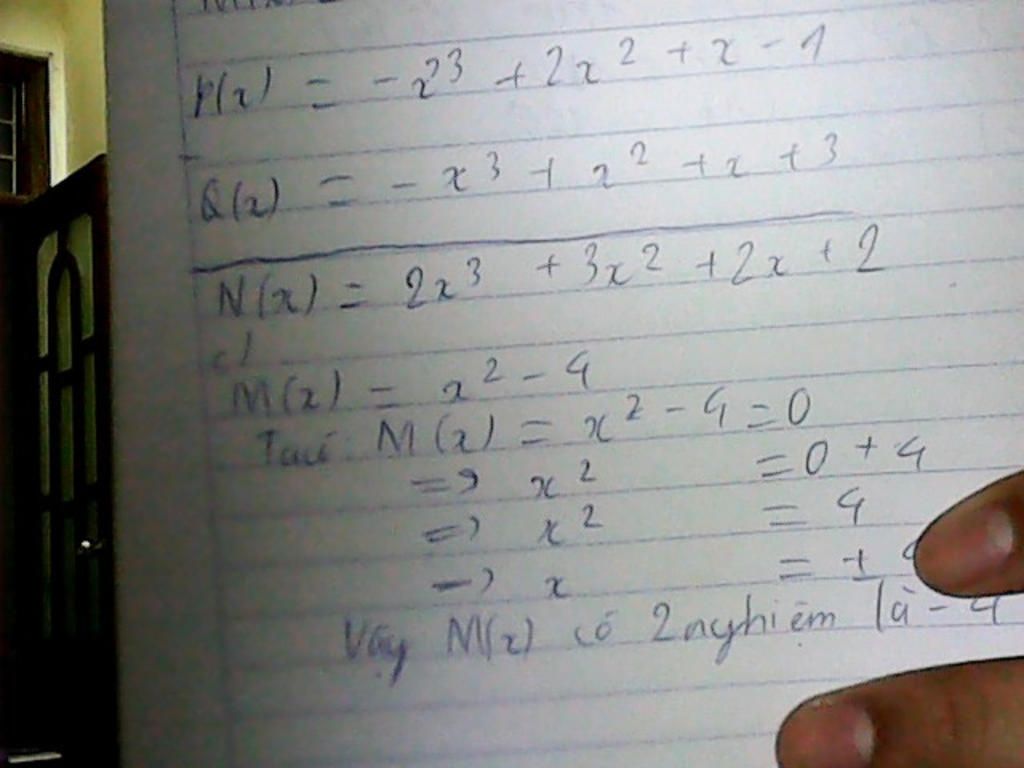 P(x) = - x³ + 2x² + x - 1
Q(x) = - x³ + x² + x + 3
N(x) = 2x³ + 3x² + 2x + 2
c/
M(x) = x² - 4
Ta có: M(x) = x² - 4 = 0
=> x² = 0 + 4
=> x² = 4
=> x = ±
Vậy M(x) có 2 nghiệm là - 4